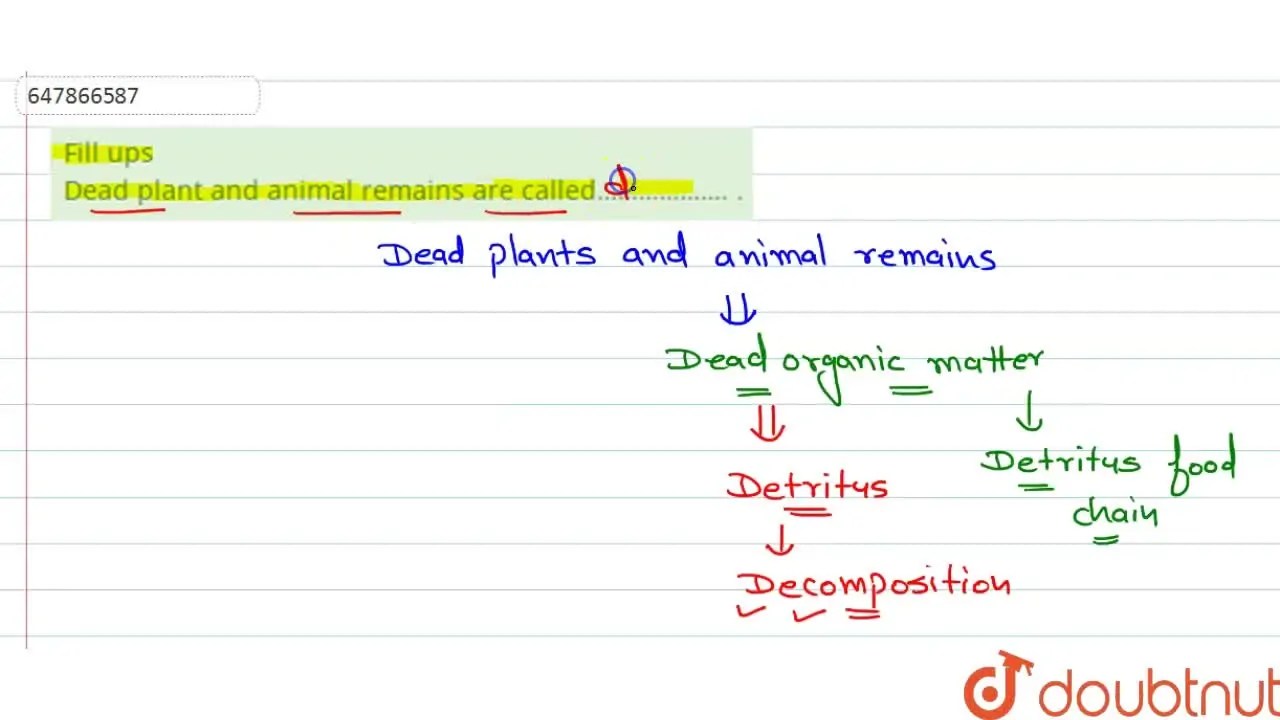 647866587
Fill ups
Dead plant and animal remains are called d.................. .
Dead plants and animal remains
⇓
Dead organic matter
⇓ ↓
Detritus food
chain
Detritus
↓
Decomposition
doubtnut